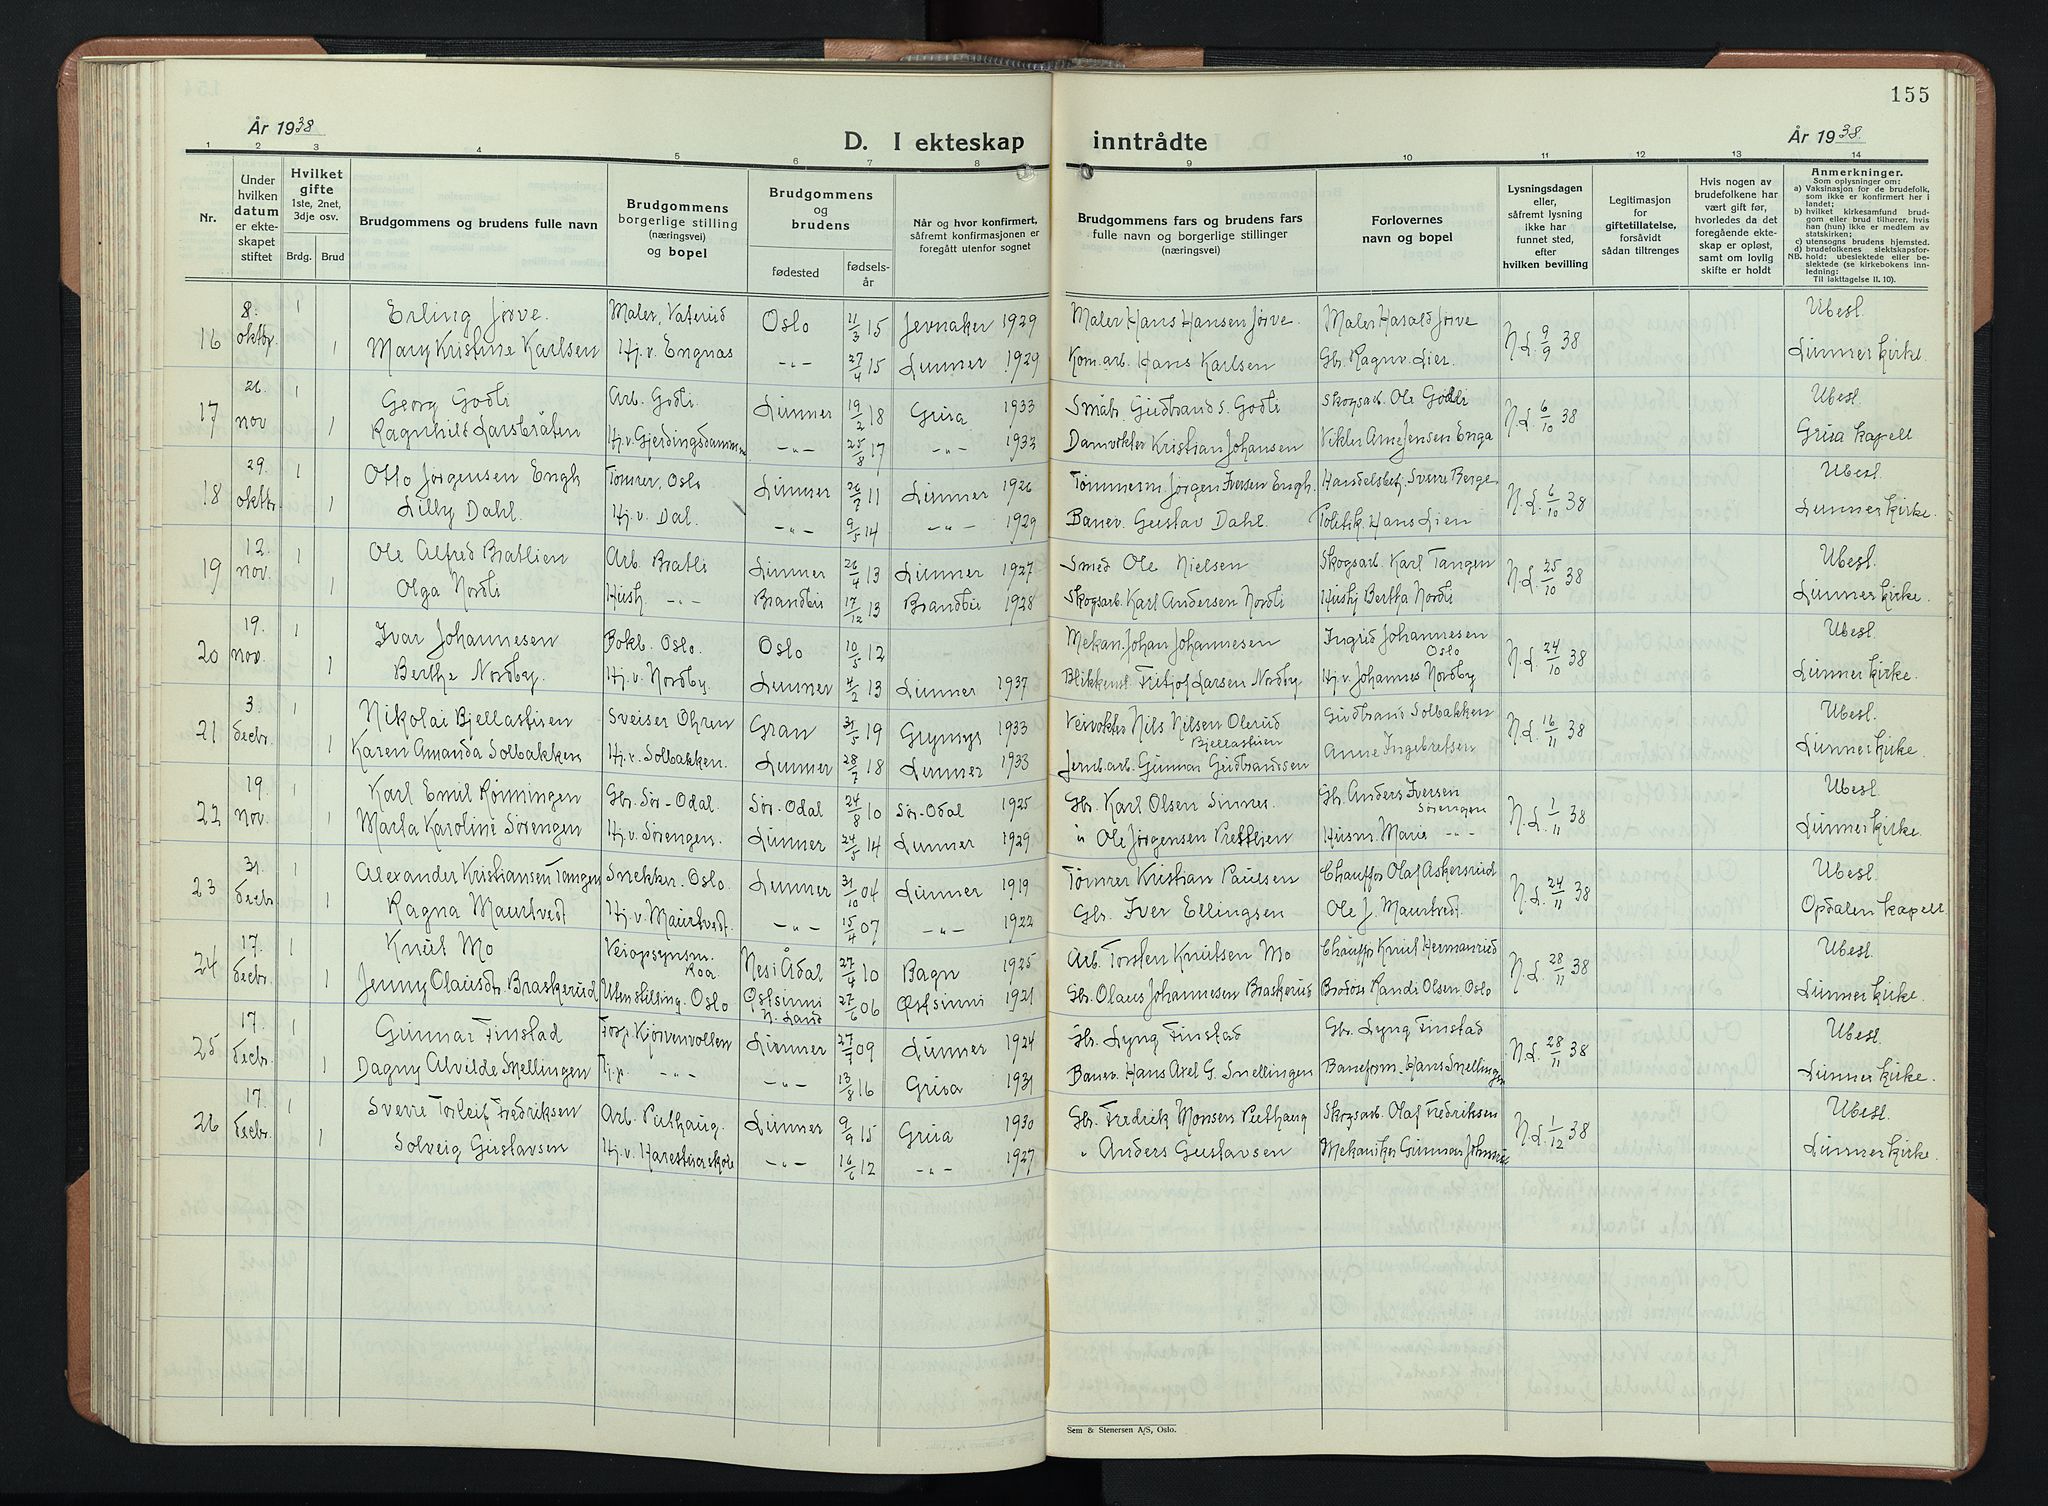 155
År 1938
D. I ekteskap inntrådte
År 1938.
1 2 3 4 5 6 7 8 9 10 11 12 13 14
Nr.
Under hvilken datum er ekteskapet stiftet
Hvilket gifte 1ste, 2net, 3dje osv.
Brdg. Brud
Brudgommens og brudens fulle navn
Brudgommens borgerlige stilling (næringsvei) og bopel
Brudgommens og brudens
fødested
fødselsår
Når og hvor konfirmert, såfremt konfirmasjonen er foregått utenfor sognet
Brudgommens fars og brudens fars fulle navn og borgerlige stillinger (næringsvei)
Forlovernes navn og bopel
Lysningsdagen eller, såfremt lysning ikke har funnet sted, efter hvilken bevilling
Legitimasjon for giftetillatelse, forsåvidt sådan tiltrenges
Hvis nogen av brudefolkene har vært gift før, hvorledes da det foregående ekteskap er opløst, samt om lovlig skifte er holdt
Anmerkninger.
Som oplysninger om:
a) Vaksinasjon for de brudefolk, som ikke er konfirmert her i landet;
b) hvilket kirkesamfund brudgom eller brud tilhører, hvis han (hun) ikke er medlem av statskirken;
c) utensogns brudens hjemsted.
d) brudefolkenes slektskapsforhold: ubeslektede eller beslektede (se kirkebokens innledning:
NB. Til iakttagelse II. 10).
16 8. oktbr. 1 Erling Jørve. Maler, Vaterud Oslo 11/3 15 Jevnaker 1929 Maler Hans Hansen Jørve. Maler Harald Jørve N.L. 9/9 38 Ubesl.
1 Mary Kristine Karlsen Hj.v. Engnæs -"- 27/4 15 Lunner 1929 Kom.arb. Hans Karlsen Gbr. Ragnv. Lier. Lunner kirke.
17 26. nov 1 Georg Godli Arb. Godli. Lunner 19/2 18 Grua 1933 Småbr Gudbrand S. Godli Skogsarb. Ole Godli N.L. 6/10 38 Ubesl.
1 Ragnhild Larsbråten Hj.v. Gjerdingsdammen -"- 25/8 17 -"- 1933 Damvokter Kristian Johansen Vekter Arne Jensen Enga Grua kapell
18 29. oktbr. 1 Otto Jørgensen Engh Tømrer, Oslo Lunner 26/7 11 Lunner 1926 Tømmerm. Jørgen Iversen Engh. Handelsbetj. Sverre Berge N.L. 6/10 38 Ubesl.
1 Lilly Dahl. Hj.v. Dal. -"- 9/5 14 -"- 1929 Banev. Gustav Dahl. Politik. Hans Lien Lunner kirke.
19 12. nov. 1 Ole Alfred Bratlien Arb. Bratli Lunner 26/4 13 Lunner 1927 Smed Ole Nielsen Skogsarb. Karl Tangen N.L. 25/10 38 Ubesl.
1 Olga Nordli Hush. -"- Brandbu 17/12 13 Brandbu 1928 Skogsarb. Karl Andersen Nordli Hushj Bertha Nordli Lunner kirke.
20 19. nov. 1 Ivar Johannesen Bokb. Oslo. Oslo 10/5 12 Mekan. Johan Johannesen Ingrid Johannesen Oslo N.L. 24/10 38 Ubesl.
1 Berthe Nordby. Hj.v. Nordby. Lunner 4/2 13 Lunner 1937 Blikkensl. Fritjof Larsen Nordby. Hj.v Johannes Nordby Lunner kirke.
21 3. decbr. 1 Nikolai Bjellastuen Sveiser Ohren Gran 31/5 19 Grymyr 1933 Veivokter Nils Nilsen Olerud Bjellastuen Gudbrand Solbakken N.L. 16/11 38 Ubesl.
1 Karen Amanda Solbakken Hj.v. Solbakken. Lunner 28/7 18 Lunner 1933 Jernb.arb. Gunnar Gudbrandssen Anne Ingebretsen Lunner kirke
22 19. nov. 1 Karl Emil Rønningen Gbr. Sør-Odal Sør-Odal 24/8 10 Sør-Odal 1925 Gbr. Karl Olsen Sinnes. Gb. Anders Iversen Sørengen N.L. 1/11 38 Ubesl.
1 Marta Karoline Sørengen Hj.v. Sørengen. Lunner 24/5 14 Lunner 1929 " Ole Jørgensen Prestlien Husm. Marie -"- Lunner kirke.
23 31. decbr 1 Alexander Kristiansen Tangen Snekker. Oslo. Lunner 31/10 04 Lunner 1919 Tømrer Kristian Paulsen Chauffør Olaf Askersrud N.L. 24/11 38 Ubesl.
1 Ragna Maurtvedt Hj.v. Maurtvedt. -"- 15/4 07 -"- 1922 Gbr. Iver Ellingsen Ole J. Maurtvedt. Opdalen kapell
24 17. decbr. 1 Knut Mo Veiopsynsm. Roa Nes i Ådal 27/4 10 Bagn 1925 Arb. Torsten Knutsen Mo Chauffør Knut Hermanrud N.L. 28/11 38 Ubesl.
1 Jenny Olausdtr. Braskerud Uten stilling. Oslo Østsinni N. Land 27/6 06 Østsinni 1921 Gbr. Olaus Johannesen Braskerud Brodøse Randi Olsen, Oslo Lunner kirke.
25 17. decbr. 1 Gunnar Finstad Forp. Kjørvenvollen Lunner 27/7 09 Lunner 1924 Gb. Lyng Finstad Gbr. Lyng Finstad N.L. 28/11 38 Ubesl.
1 Dagny Alvilde Snellingen Tj.p. -"- -"- 13/8 16 Grua 1931 Banev. Hans Axel G. Snellingen Baneform. Hans Snellingen Lunner kirke.
26 17. decbr. 1 Sverre Torleif Fredriksen Arb. Piethaug. Lunner 9/9 15 Grua 1930 Gbr. Fredrik Monsen Piethaug Skogsarb. Olaf Fredriksen N.L. 1/12 38 Ubesl.
1 Solveig Gustavsen Hj.v. Harestua skole -"- 16/6 12 -"- 1927 " Anders Gustavsen Mekaniker Gunnar Lunner kirke.
Sem & Stenersen A/S, Oslo.